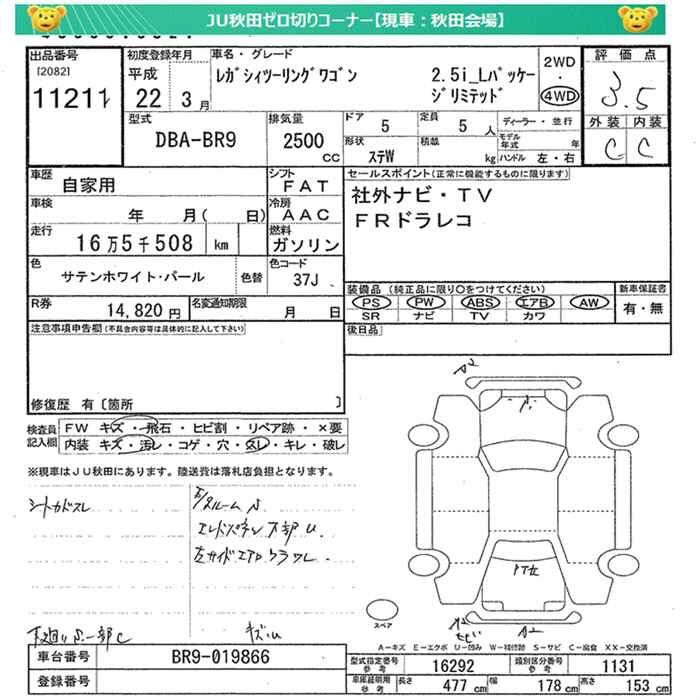 JU秋田ゼロ切りコーナー【現車：秋田会場】
出品番号
[2082]
11211
初度登録年月
平成
22年 3月
車名・グレード
レガシィツーリングワゴン
2.5i_Lパッケー
ジリミテッド
2WD
・
4WD
評価点
3.5
外装 内装
C C
型式
DBA-BR9
排気量
2500
CC
ドア 5
定員 5 人
ディーラー・並行
モデル年式 年
形状 ステW
積載 kg
ハンドル 左・右
車歴 自家用
シフト FAT
車検 年 月( 日)
冷房 AAC
走行 16万5千508 km
燃料 ガソリン
色 サテンホワイト・パール
色替
色コード 37J
R券 14,820 円
名変通知期限 月 日
セールスポイント(正常に機能するものに限ります)
社外ナビ・TV
FRドラレコ
装備品 (純正品に限り〇をつけてください)
PS PW ABS エアB AW
SR ナビ TV カワ
新車保証書
有・無
後日品
注意事項申告欄(不具合内容等は具体的に記入して下さい)
修復歴 有〔箇所 〕
検査員記入欄
FW キズ・飛石・ヒビ割・リペア跡・×要
内装 キズ・汚レ・コゲ・穴・スレ・キレ・破レ
※現車はJU秋田にあります。陸送費は落札店負担となります。
A2
スペア
A2
A2
A－キズ E－エクボ U－凹み W－補修跡 S－サビ C－腐食 XX－交換済
車台番号 BR9-019866
登録番号
型式指定番号 参考 16292
類別区分番号 参考 1131
車庫証明用 参考 長さ 477 cm 幅 178 cm 高さ 153 cm